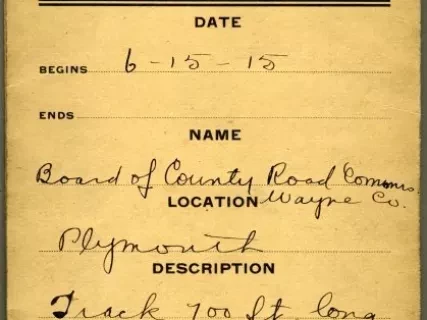 DATE
BEGINS 6-15-15
ENDS
NAME
Board of County Road Comms.
LOCATION Wayne Co.
Plymouth
DESCRIPTION
Track 700 ft. long